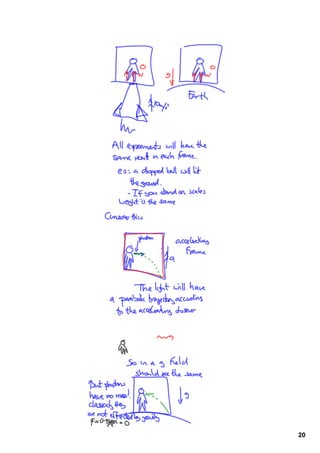 g
Earth
All experiments will have the
same result in each frame.
eg: a dropped ball will hit
the ground.
- If you stand on scales
weight is the same
Consider this
photon
accelerating
frame
a
The light will have
a parabolic trajectory according
to the accelerating observer
So in a g field
should see the same
But photons
have no mass!
classically they
are not effected by gravity
g
20